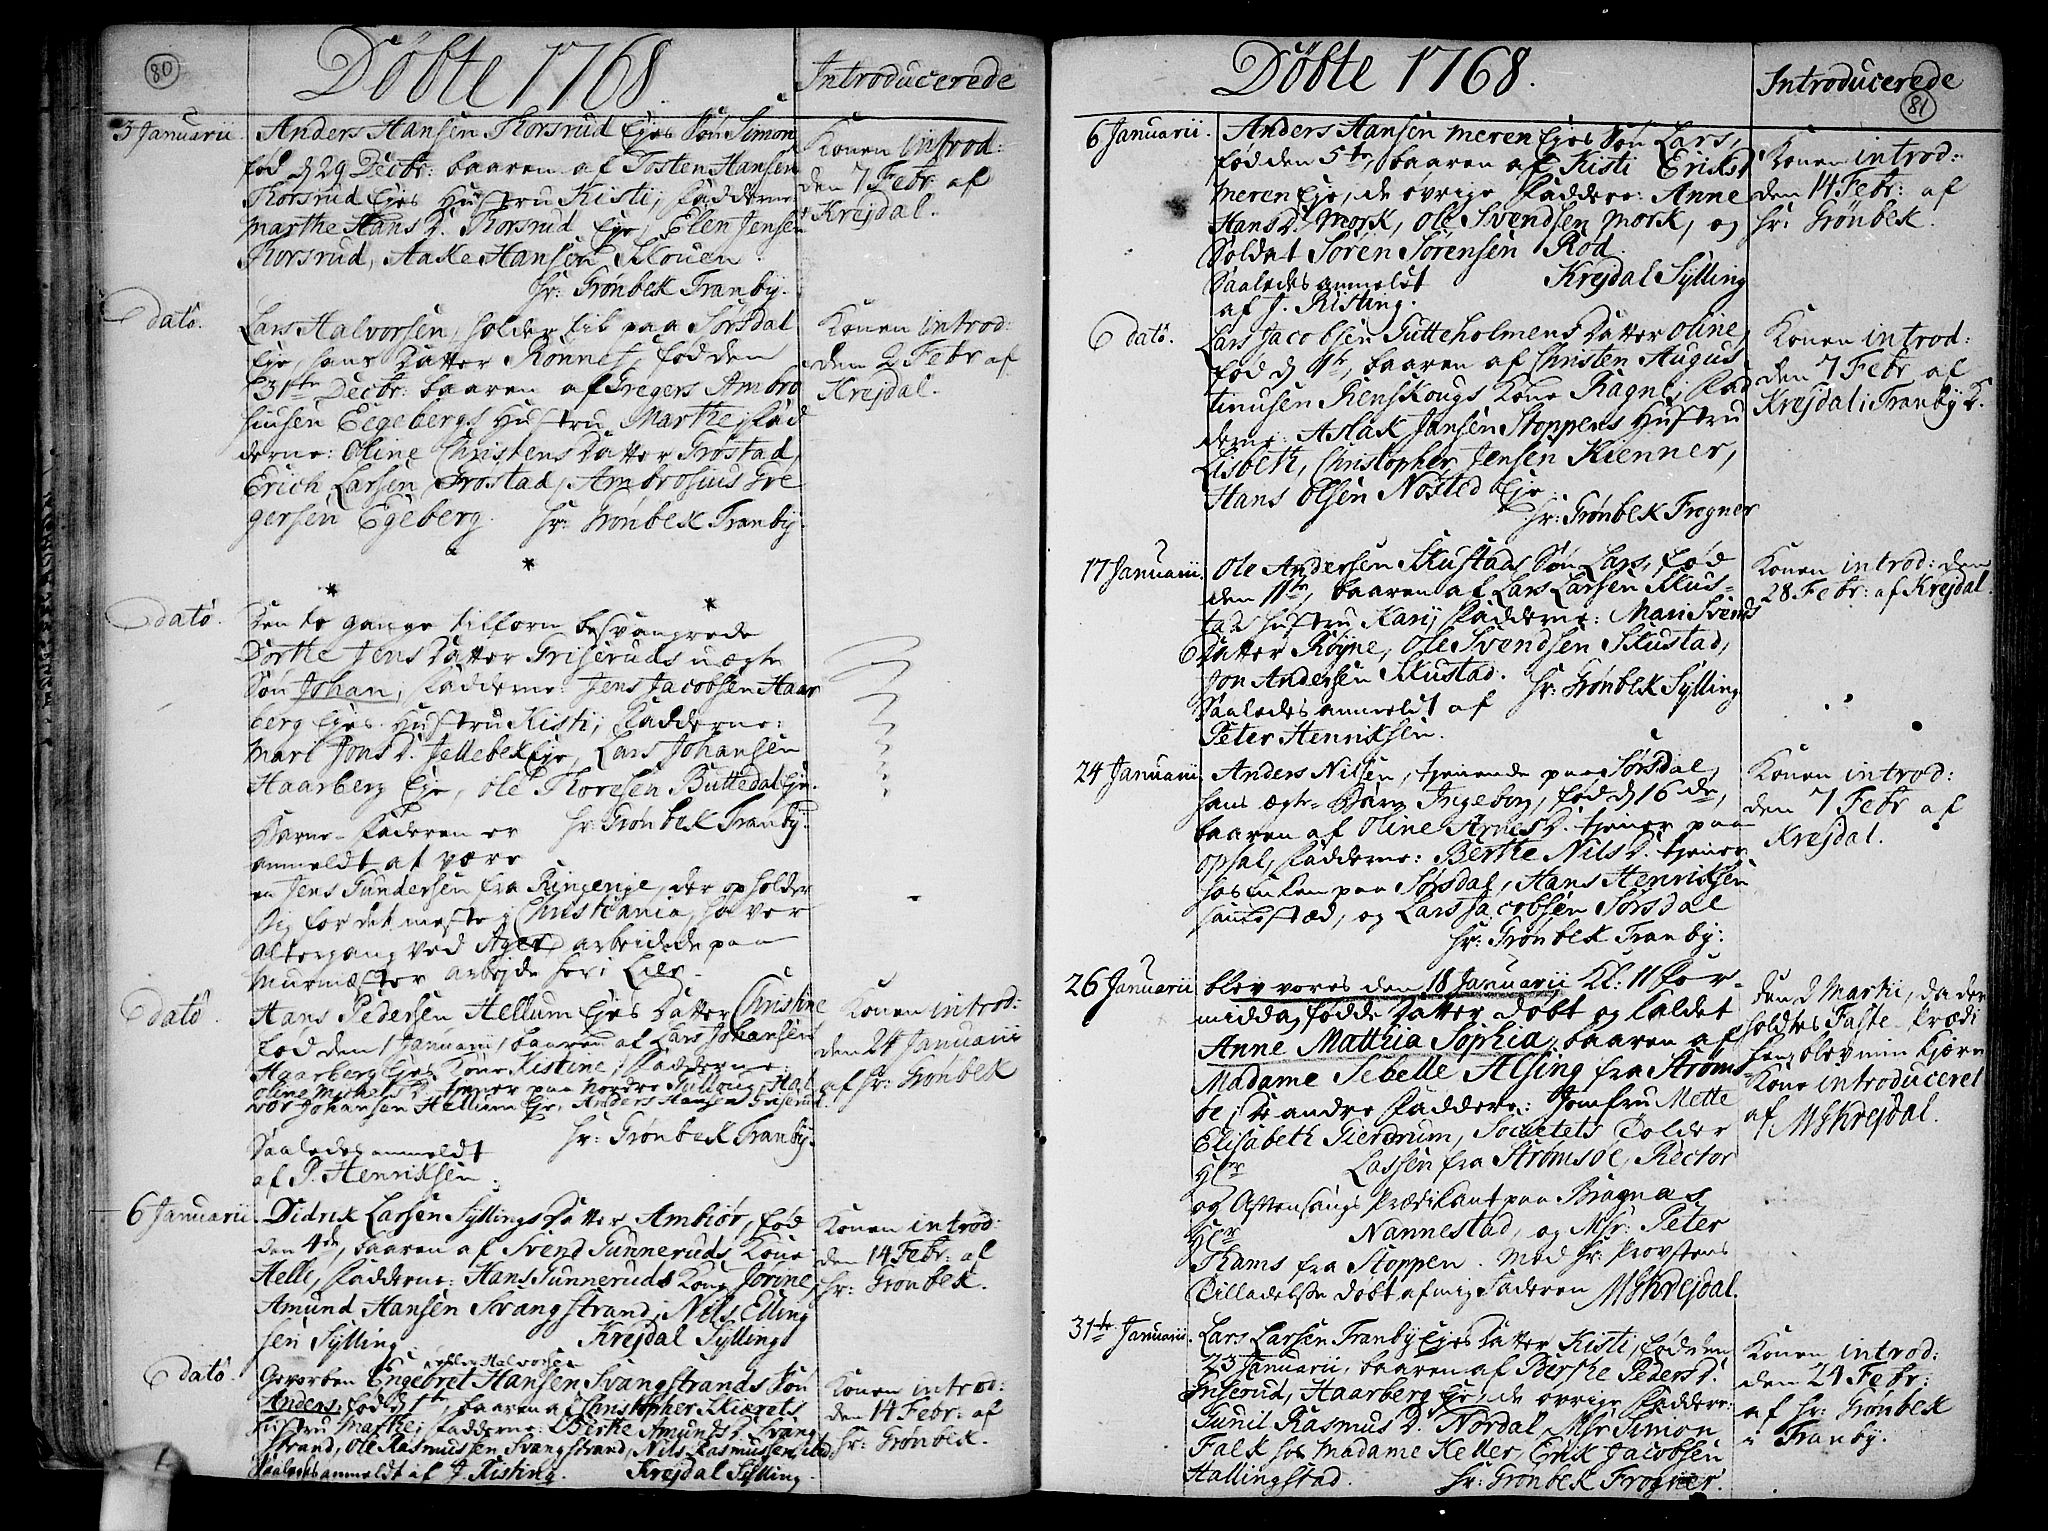 80
Döbte 1768.
Introducerede
3 Januarii.
Anders Hansen Korsrud Ejes Søn Simon
fød d 29 Decbr: baaren af Tosten Hansen
Korsrud Ejes Hustru Kisti, Fadderne
Marthe Hans D. Korsrud Eje, Elen Jensen
Korsrud, Aake Hansen Skouen.
hr: Grönbek Tranby.
Konen introd:
den 7 Febr af
Krejdal.
dato.
Lars Halvorsen, holder til paa Sørsdal
Eje, hans Datter Ronnef, fød den
31te Decbr: baaren af Gregers Ambro
siusen Eegebergs Hustru Marthe, Fad
derne: Oline Christens Datter Grostad,
Erich Larsen Grostad, Ambrosius Gre
gersen Egeberg. hr: Grönbek Tranby.
Konen introd:
den 2 Febr af
Krejdal.
dato.
Den to gange tilforn besvangrede
Dorthe Jens Datter Griseruds uægte
Søn Johan, Fadderne: Jens Jacobsen Haar
berg Ejes Hustru Kisti, Fadderne:
Mari Jons D. Jellebek Eje, Lars Johansen
Haarberg Eje, Ole Thoresen Buttedal Eje.
Barne-Faderen er hr: Grönbek Tranby.
anmeldt at være
en Jens Gundersen fra Ringerige, der opholder
sig for det meste i Christiania, haver
altergang ved Ager, arbeidede paa
Murmester arbejde her i Lier.
dato.
Hans Pedersen Hellum Ejes Datter Christine
fød den 1 Januarii, baaren af Lars Johansen
Haarberg Ejes Kone Kistine, Fadderne:
Oline Michels D. tjener paa Nordre Gulloug, Hal
vor Johansen Hellum Eje, Anders Hansen Griserud.
Saaledes anmeldt hr: Grönbek Tranby.
af P. Henriksen.
Konen introd:
den 24 Januarii
af hr: Grönbek
6 Januarii.
Didrik Larsen Syllings Datter Ambiør, fød
den 4de, baaren af Svend Gunneruds Kone
Helli, Fadderne: Hans Gunneruds Kone Jørine,
Amund Hansen Svangstrand, Nils Elling
sen Sylling. Krejdal Sylling
Konen introd:
den 14 Febr: af
hr: Grönbek.
dato.
eller Halvorsen
Gevorben Engebret Hansen Svangstrands Søn
Anders, fød d 1te, baaren af Christopher Skierets
Hustru Marthe, Fadderne: Berthe Amunds D. Svang
strand, Ole Rasmussen Svangstrand, Nils Rasmussen ibid
Saaledes anmeldt af J. Risting. Krejdal Sylling.
Konen introd:
den 14 Febr: af
hr: Grönbek.
Döbte 1768.
Introducerede
81
6 Januarii.
Anders Hansen Meren Ejes Søn Lars,
fød den 5te, baaren af Kisti Eriks D
Meren Eje, de øvrige Faddere: Anne
Hans D. Mork, Ole Svendsen Mork, og
Soldat Sören Sörensen Rod.
Saaledes anmeldt Krejdal Sylling
af J. Risting.
Konen introd:
den 14 Febr: af
hr: Grönbek.
dato.
Lars Jacobsen Gutteholmens Datter Oline,
fød d 1te, baaren af Christen Augus
tinusen Renskougs Kone Ragne, Fad
derne: Aslak Jansen Stoppens Hustru
Lisbeth, Christopher Jensen Kienner,
Hans Olsen Nosted Eje.
hr: Grönbek Frogner
Konen introd:
den 7 Febr af
Krejdal i Tranby K.
17 Januarii.
Ole Andersen Skustads Søn Lars, fød
den 11te, baaren af Lars Larsen Skus-
tads Hustru Kari, Fadderne: Mari Svends
Datter Røyne, Ole Svendsen Skustad,
Jon Andersen Skustad. hr: Grönbek Sylling
Saaledes anmeldt af
Peter Henriksen.
Konen introd: den
28 Febr: af Krejdal.
24 Januarii
Anders Nilsen, tjenende paa Sørsdal,
hans ægte-Barn Ingeborg, fød d 16de,
baaren af Oline Arnes D. tjener paa
Opsal, Fadderne: Berthe Nils D. tjener
hos Enken paa Sørsdal, Hans Henriksen
sammested, og Lars Jacobsen Sørsdal
hr: Grönbek Tranby.
Konen introd:
den 7 Febr af
Krejdal.
26 Januarii
blev vores den 18 Januarii Kl: 11 For-
middag fødde Datter døbt og kaldet
Anne Matthia Sophia, baaren af
Madame Sebelle Alsing fra Ströms-
øe, De andre Faddere: Jomfru Mette
Elisabeth Gierdrum, Societets Tolder
Hr Lassen fra Strømsøe, Rector
og Aftensangs Prædikant paa Bragnæs
Hr Nannestad, og Msr: Peter
Thams fra Stoppen. Med hr: Provstens
Tilladelse døbt af mig Faderen MShrejdal.
den 2 Martii, da der
holdtes Faste-Prædi
ken, blev min kjære
Kone introduceret
af MShrejdal.
31te Januarii.
Lars Larsen Tranby Ejes Datter Kisti, fød den
23 Januarii, baaren af Berthe Peders D.
Griserud, Haarberg Eje, de øvrige Faddere:
Gunil Rasmus D. Nordal, Msr Simon
Falk hos Madame Keller, Erik Jacobsen
Hallingstad. hr: Grönbek Frogner.
Konen introd:
den 24 Febr:
af hr: Grönbek
i Tranby.